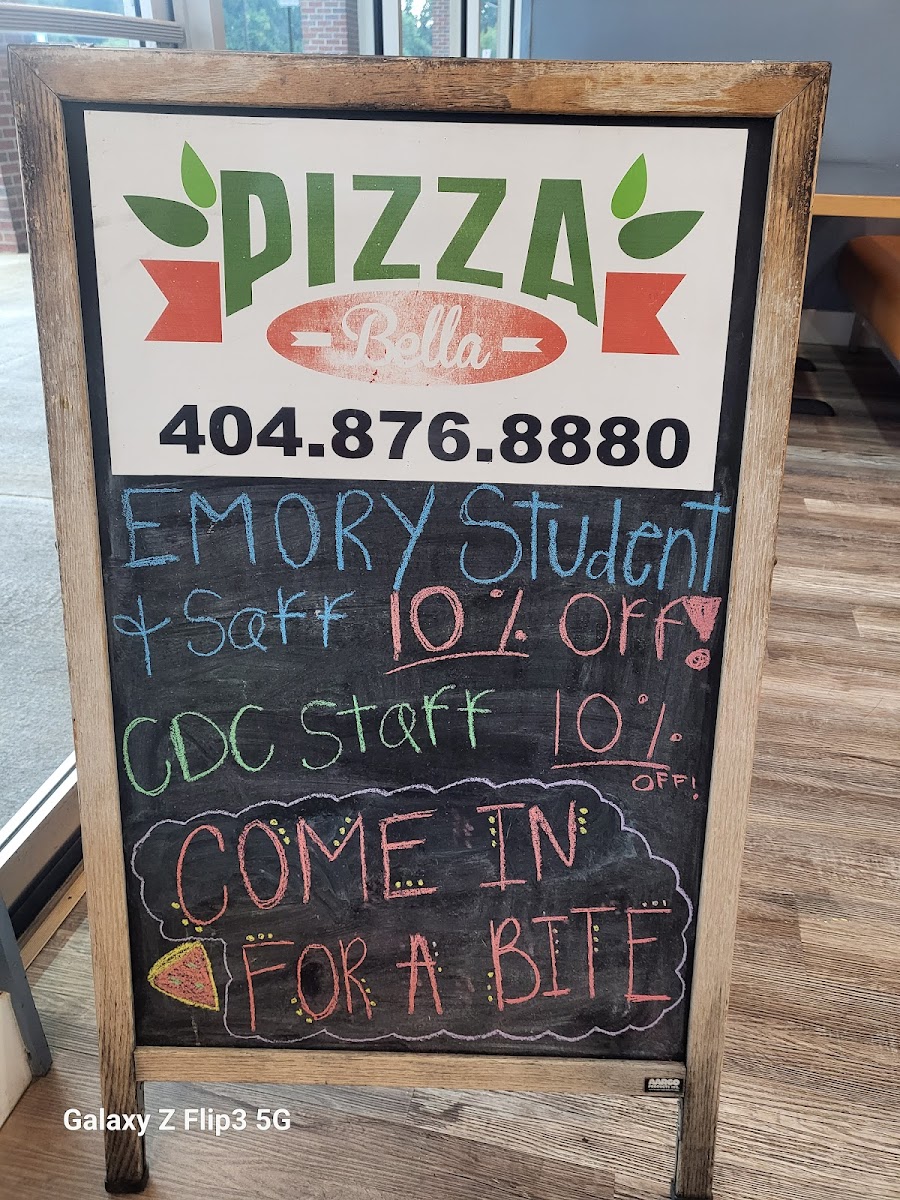 PIZZA
Bella
404.876.8880
EMORY Student
& Saff 10% Off!
CDC Staff 10%
OFF!
COME IN
FOR A BITE
AARCO
PRODUCTS INC.
Galaxy Z Flip3 5G